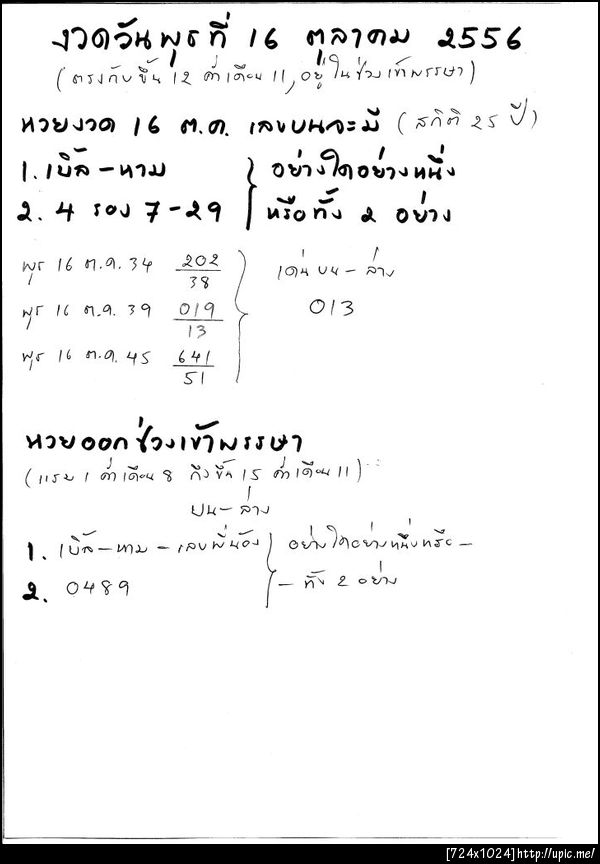 งวดวันพุธที่ 16 ตุลาคม 2556
(ตรงกับขึ้น 12 ค่ำเดือน 11, อยู่ในช่วงเข้าพรรษา)
หวยงวด 16 ต.ค. เลขบนจะมี (สถิติ 25 ปี)
1. เบิ้ล - หาม } อย่างใดอย่างหนึ่ง
2. 4 รอง 7 - 29 หรือทั้ง 2 อย่าง
พุธ 16 ต.ค. 34 202 เด่นบน - ล่าง
38
พุธ 16 ต.ค. 39 019 013
13
พุธ 16 ต.ค. 45 641
51
หวยออกช่วงเข้าพรรษา
(แรม 1 ค่ำเดือน 8 ถึงขึ้น 15 ค่ำเดือน 11)
บน - ล่าง
1. เบิ้ล - หาม - เลขพี่น้อง } อย่างใดอย่างหนึ่งหรือ -
2. 0489 - ทั้ง 2 อย่าง
[724x1024]http://upic.me/